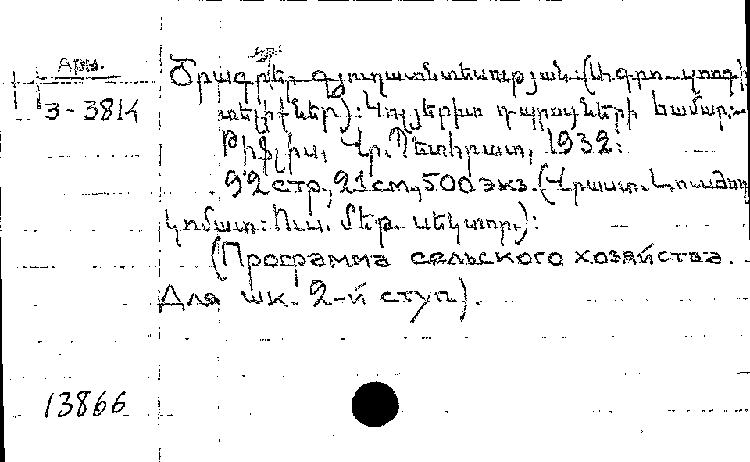 Арм.
3-3814
Ծրագրեր գյուղատնտեսության (Ագրո-կոլ
տեխ): Կոլյերիտ դպրոցների համար:-
Թիֆլիս, Վր. Պետհրատ, 1932:
92 стр., 21 см, 500 экз. (Վրաստ. Լուսժող
կոմատ: Ուս. մեթ. սեկտոր.):
(Программа сельского хозяйства.
Для шк. 2-й ступ).
13866